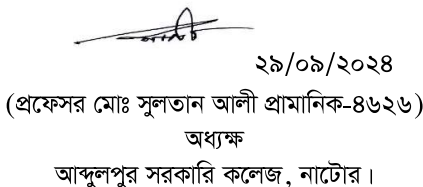 ২৯/০৯/২০২৪
(প্রফেসর মোঃ সুলতান আলী প্রামানিক-৪৬২৬)
অধ্যক্ষ
আব্দুলপুর সরকারি কলেজ, নাটোর।